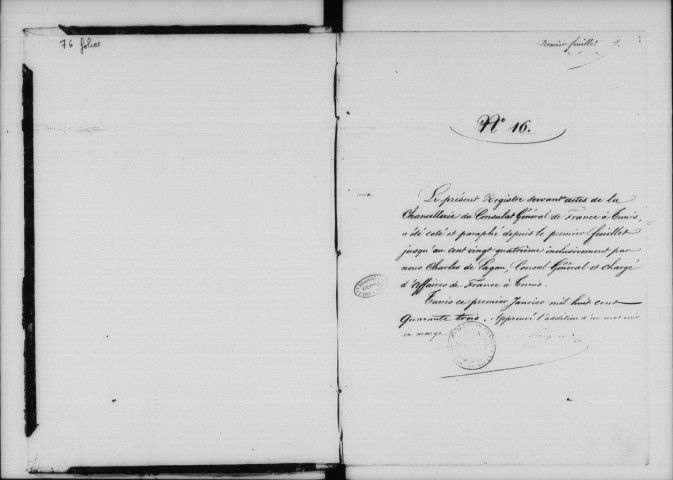 76 folios
Premier feuillet 1.
N° 16.
Le présent Registre servant actes de la
Chancellerie du Consulat Général de France à Tunis,
a été coté et paraphé depuis le premier feuillet
jusqu'au cent vingt quatrième inclusivement par
nous Charles de Lagau, Consul Général et chargé
d'affaires de France à Tunis.
Tunis ce premier Janvier mil huit cent
Quarante trois. Approuvé l'addition d'un mot mis
en marge